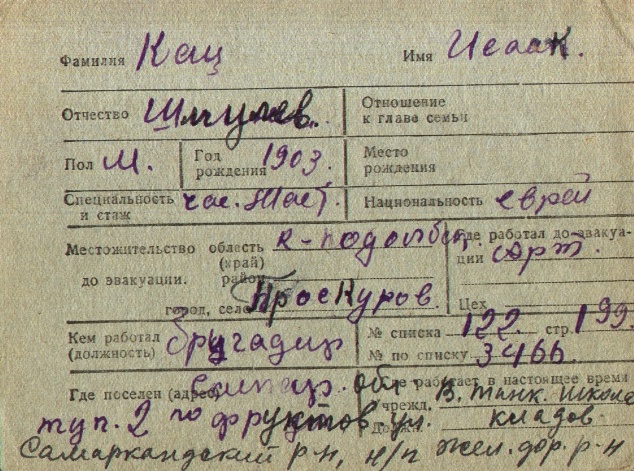 Фамилия Кац Имя Исаак.
Отчество Шмулев. Отношение к главе семьи
Пол М. Год рождения 1903. Место рождения
Специальность и стаж час. Маст. Национальность еврей
Местожительство область (край) К-Подольск. Где работал до эвакуации Арт.
до эвакуации. район
город, село Проскуров. Цех
Кем работал (должность) Бригадир № списка 122 стр. 199
№ по списку 3466.
Где поселен (адрес) Самар. обл. Где работает в настоящее время
учрежд. В. Танк. Школа
туп. 2го фруктов ул. Должн. кладов.
Самаркандский р-н, н/п жел. дор. р-н